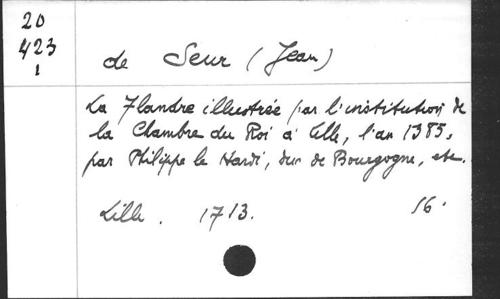 20
423
1
de Seur (Jean)
La Flandre illustrée par l'institution de
la Chambre du Roi à Lille, l'an 1385,
par Philippe le Hardi, duc de Bourgogne, etc.
Lille. 1713. 16.